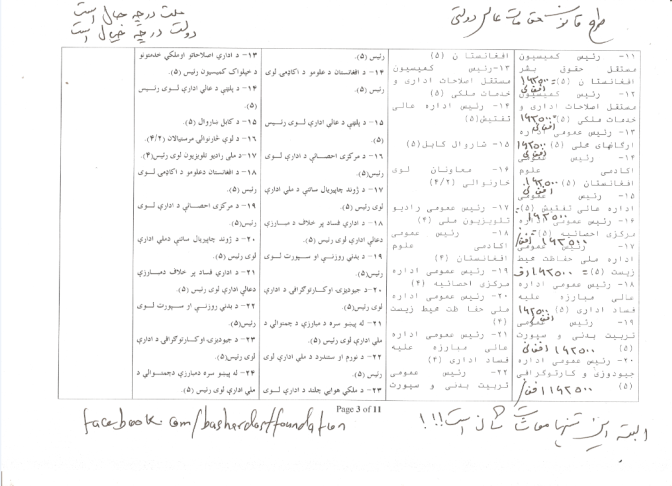 طرح قانون حقوق مقامات عالی دولتی
ملت در چه حال است
دولت در چه خیال است
۱۱- رئیس کمیسیون
مستقل حقوق بشر
افغانستان (۵) = ۱۹۲۵۰۰ افغانی
۱۲- رئیس کمیسیون
مستقل اصلاحات اداری و
خدمات ملکی (۵) = ۱۹۲۵۰۰ افغانی
۱۳- رئیس عمومی اداره
ارگانهای محلی (۵) ۱۹۲۵۰۰ افغانی
۱۴- رئیس عمومی
اکادمی علوم
افغانستان (۵) ۱۹۲۵۰۰
۱۵- رئیس عمومی
اداره عالی تفتیش (۵) = ۱۹۲۵۰۰
۱۶- رئیس عمومی اداره
مرکزی احصائیه (۵) = ۱۹۲۵۰۰
۱۷- رئیس عمومی
اداره ملی حفاظت محیط
زیست (۵) = ۱۹۲۵۰۰
۱۸- رئیس عمومی اداره
عالی مبارزه علیه
فساد اداری (۵) ۱۹۲۵۰۰ افغانی
۱۹- رئیس عمومی
تربیت بدنی و سپورت
(۵) ۱۹۲۵۰۰ افغانی
۲۰- رئیس عمومی اداره
جیودوزی و کارتوگرافی
(۵) ۱۹۲۵۰۰
افغانستان (۵)
۱۳- رئیس کمیسیون
مستقل اصلاحات اداری و
خدمات ملکی (۵)
۱۴- رئیس اداره عالی
تفتیش (۵)
۱۵- شاروال کابل (۵)
۱۶- معاونان لوی
خارنوالی (۴/۲)
۱۷- رئیس عمومی رادیو
تلویزیون ملی (۴)
۱۸- رئیس عمومی
اکادمی علوم
افغانستان (۴)
۱۹- رئیس عمومی اداره
مرکزی احصائیه (۴)
۲۰- رئیس عمومی اداره
ملی حفاظت محیط زیست
(۴)
۲۱- رئیس عمومی اداره
عالی مبارزه علیه
فساد اداری (۴)
۲۲- رئیس عمومی
تربیت بدنی و سپورت
رئیس (۵).
۱۴- د افغانستان د علومو د اکاډمی لوی
رئیس (۵).
۱۵- د پلټنې د عالي ادارې لوی رئیس
(۵).
۱۶- د مرکزی احصائیي د ادارې لوی
رئیس (۵).
۱۷- د ژوند چاپیریال ساتنې د ملي ادارې
لوی رئیس (۵).
۱۸- د ادارې فساد پر خلاف د مبارزې
دعالي ادارې لوی رئیس (۵).
۱۹- د بدنی روزنې او سپورت لوی
رئیس (۵).
۲۰- د جیودیزی، او کارتوګرافی د ادارې
لوی رئیس (۵).
۲۱- له پیښو سره د مبارزې د چمتوالي د
ملي ادارې لوی رئیس (۵).
۲۲- د نورم او ستندرد د ملي ادارې لوی
رئیس (۵).
۲۳- د ملکي هوایي چلند د ادارې لوی
۱۳- د اداري اصلاحاتو او ملکي خدمتونو
د خپلواک کمیسیون رئیس (۵).
۱۴- د پلټنې د عالي ادارې لوی رئیس
(۵).
۱۵- د کابل ښاروال (۵).
۱۶- د لوی څارنوالۍ مرستیالان (۴/۲).
۱۷- د ملی رادیو تلویزیون لوی رئیس (۴).
۱۸- د افغانستان دعلومو د اکادمی لوی
رئیس (۵).
۱۹- د مرکزی احصائیي د ادارې لوی
رئیس (۵).
۲۰- د ژوند چاپیریال ساتنې دملي ادارې
لوی رئیس (۵).
۲۱- د اداري فساد پر خلاف دمبارزې
دعالي ادارې لوی رئیس (۵).
۲۲- د بدنی روزنې او سپورت لوی
رئیس (۵).
۲۳- د جیودیزی، او کارتوګرافی د ادارې
لوی رئیس (۵).
۲۴- له پیښو سره دمبارزې دچمتوالي د
ملي ادارې لوی رئیس (۵).
Page 3 of 11
البته این تنها معاشات شان است!!!
facebook.com/bashardostfoundation